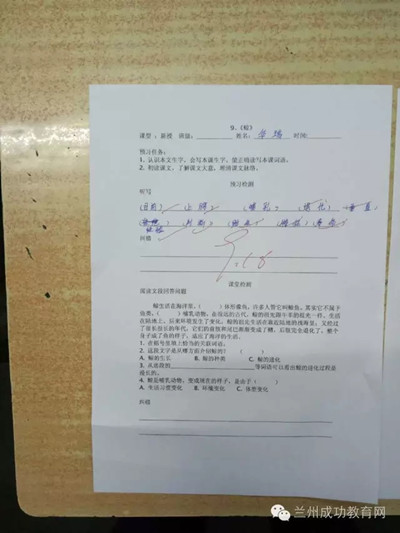 9.《鲸》
课型:新授 班级: 姓名: 时间:
预习任务:
1、认识本文生字,会写本课生字,能正确读写本课词语。
2、初读课文,了解课文大意,理清课文脉络。
预习检测
听写
目前 上腭 哺乳 垂直
判断
纠错
课堂检测
阅读文段回答问题
鲸生活在海洋里,( )体形像鱼,许多人管它叫鲸鱼。其实它不属于
鱼类,( )哺乳动物。在很远的古代,鲸的祖先跟牛羊的祖先一样,生活
在陆地上。后来环境发生了变化,鲸的祖先生活在靠近陆地的浅海里。又经过
了很长很长的年代,它们的前肢和尾巴渐渐变成了鳍,后肢完全退化了,整个
身子成了鱼的样子,适应了海洋的生活。
1、在括号里填上恰当的关联词语。
2、这段文字是从哪方面介绍鲸的?( )
A、鲸的生长 B、鲸的种类 C、鲸的进化
3、从这段的 等词语可以看出鲸的进化过程是
漫长的。
4、鲸是哺乳动物,变成现在的样子,是由于( )
A、生活习惯变化 B、环境变化 C、体型变化
纠错
兰州成功教育网